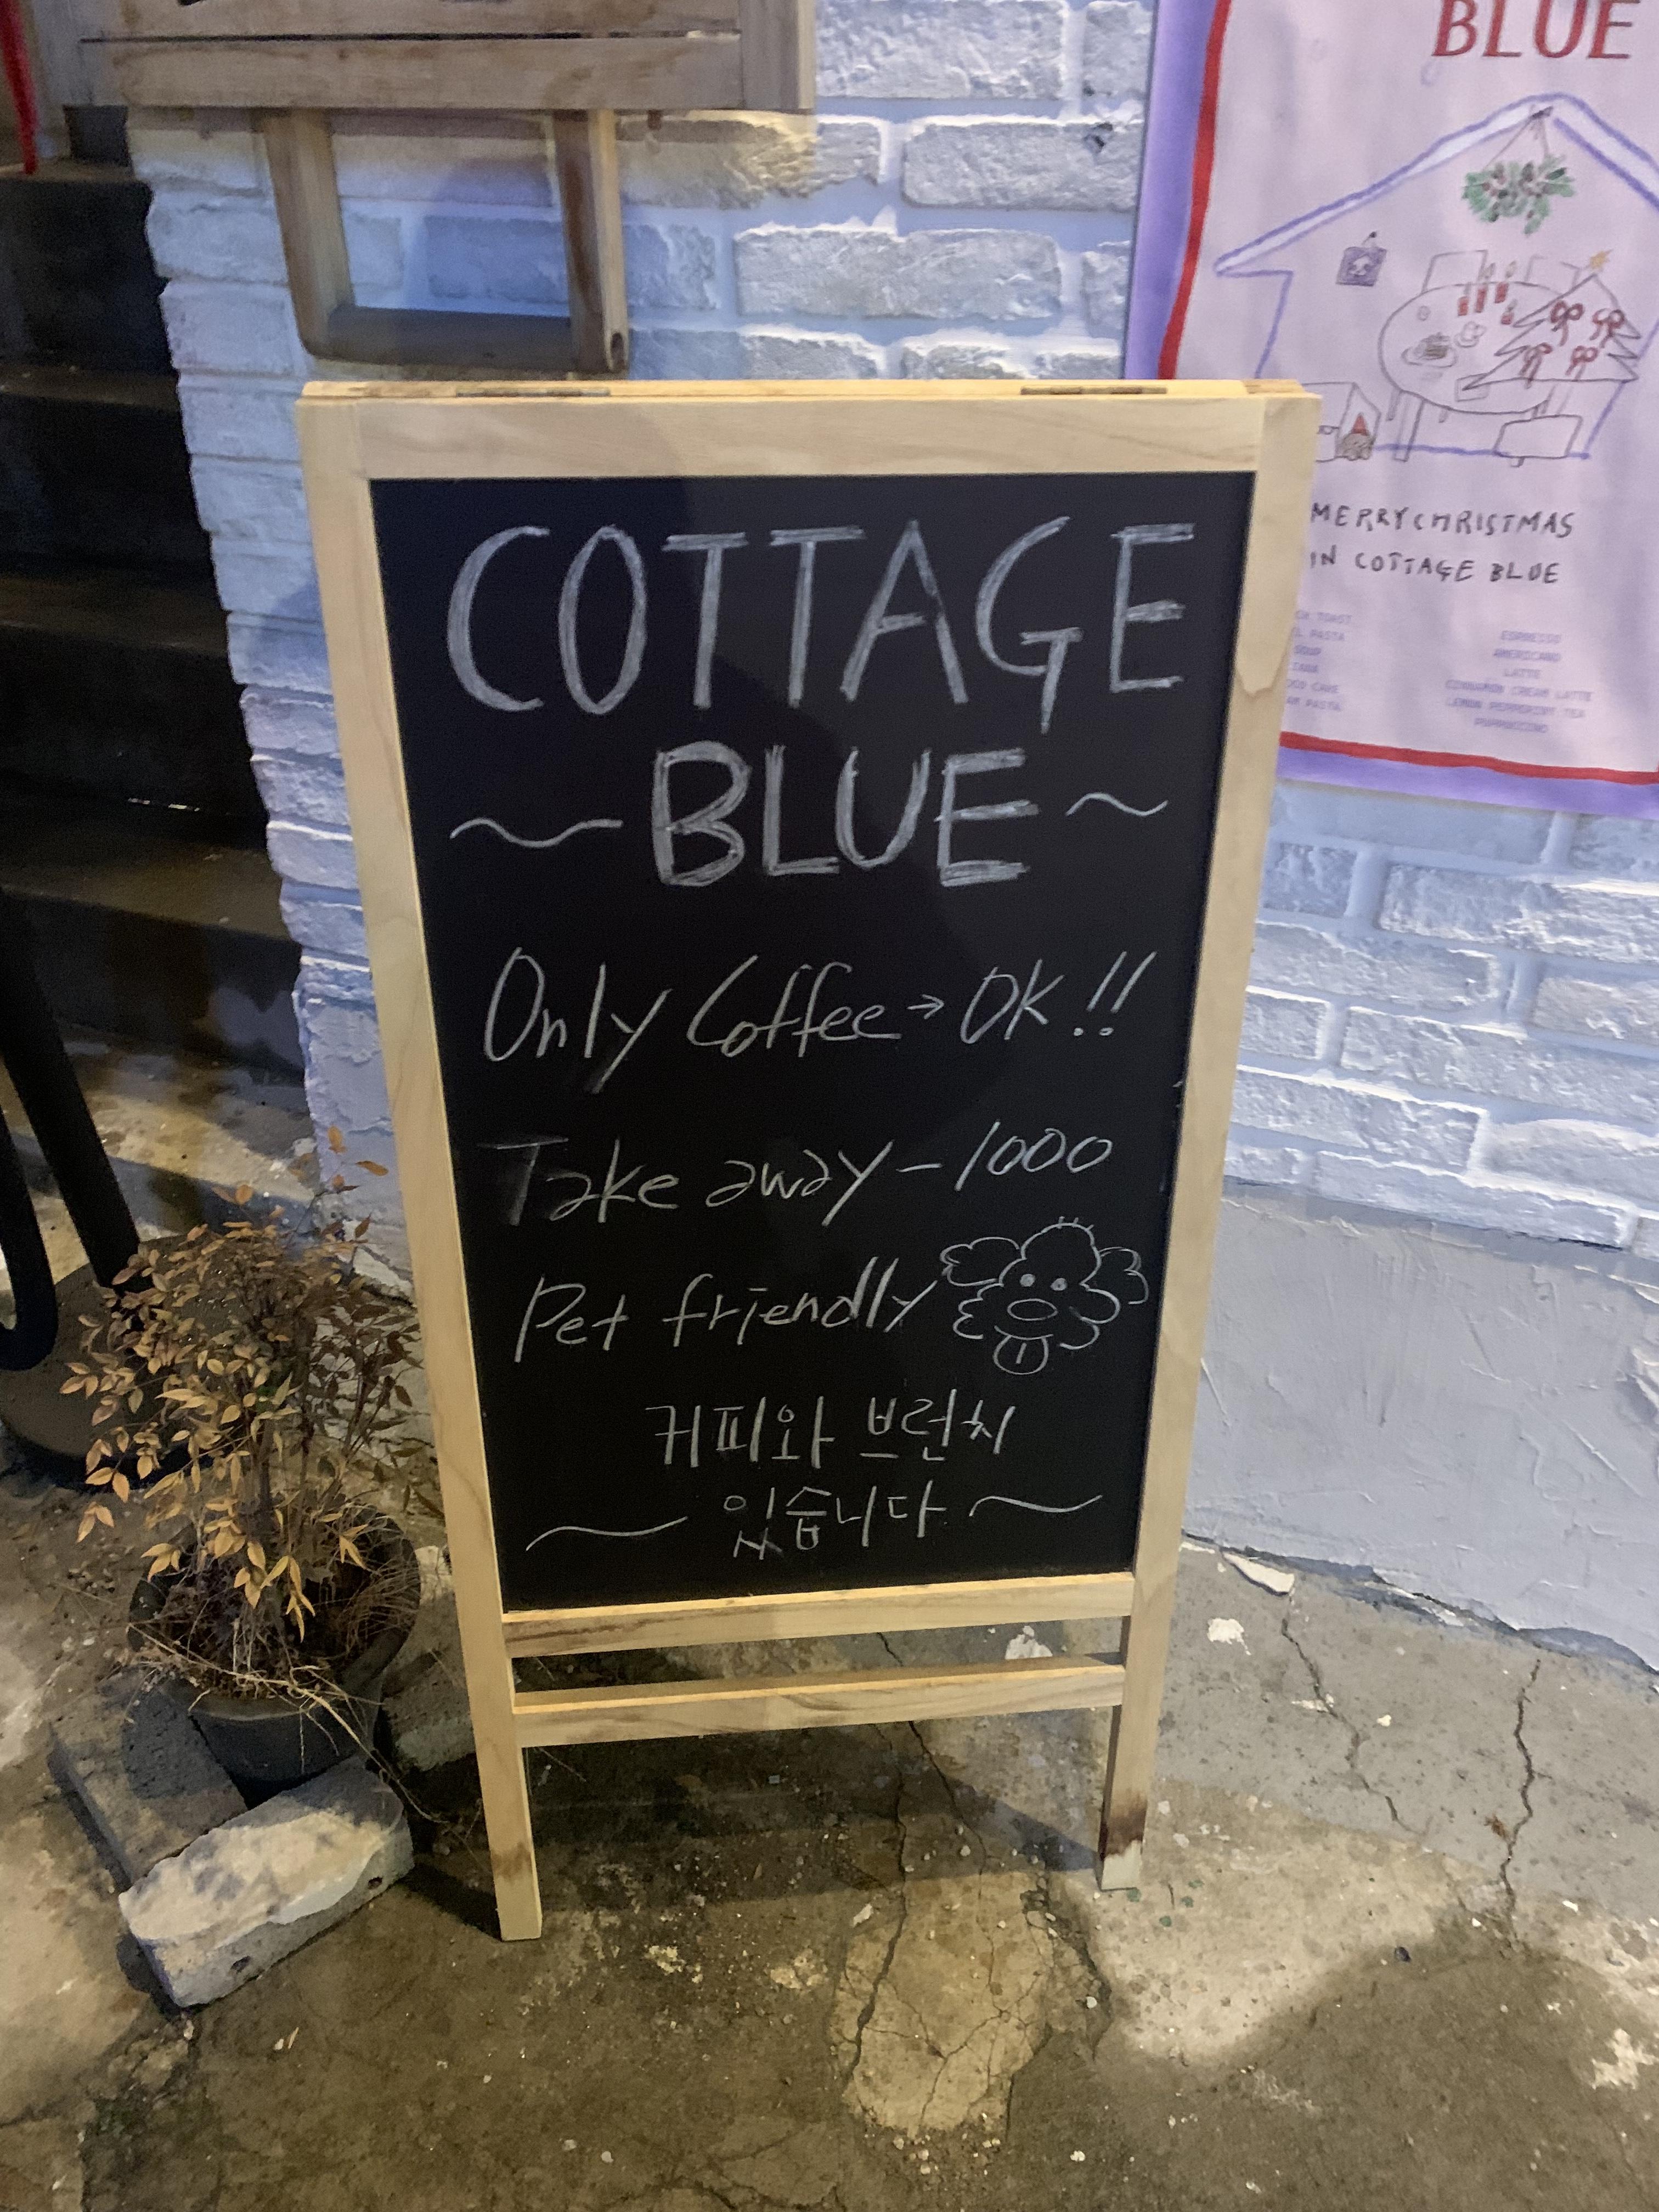 COTTAGE
~BLUE~
Only Coffee → OK!!
Take away -1000
Pet friendly
커피와 브런치
~ 있습니다 ~
BLUE
MERRY CHRISTMAS
IN COTTAGE BLUE
TOAST
PASTA
SOUP
CAKE
PASTA
ESPRESSO
AMERICANO
LATTE
CINNAMON CREAM LATTE
LEMON PEPPERMINT TEA
PUPPUCCINO